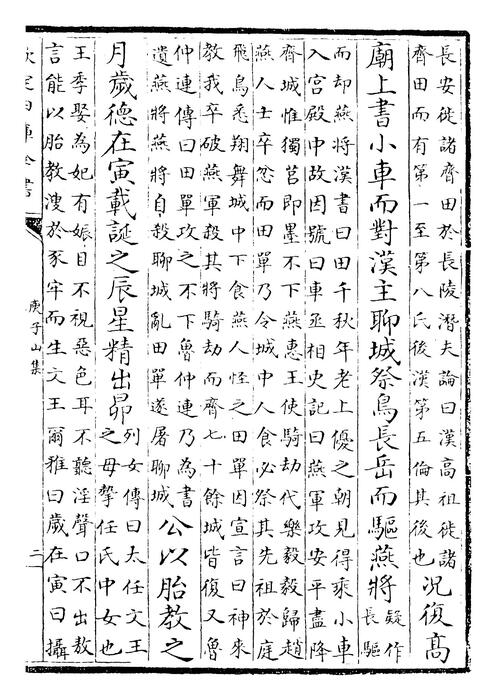 長安徙諸齊田於長陵潛夫論曰漢高祖徙諸
齊田而有第一至第八氏後漢第五倫其後也
況復高
廟上書小車而對漢主聊城祭鳥長岳而驅燕將
疑作
長驅
而却燕將漢書曰田千秋年老上優之朝見得乘小車
入宮殿中故因號曰車丞相史記曰燕軍攻安平盡降
齊城惟獨莒即墨不下燕惠王使騎劫代樂毅毅歸趙
燕人士卒忿而田單乃令城中人食必祭其先祖於庭
飛鳥悉翔舞城中下食燕人怪之田單因宣言曰神來
教我卒破燕軍殺其將騎劫而齊七十餘城皆復又魯
仲連傳曰田單攻之不下魯仲連乃為書
遺燕將燕將自殺聊城亂田單遂屠聊城
公以胎教之
月歲德在寅載誕之辰星精出昴
列女傳曰太任文王
之母摯任氏中女也
王季娶為妃有娠目不視惡色耳不聽淫聲口不出敖
言能以胎教溲於豕牢而生文王爾雅曰歲在寅曰攝
欽定四庫全書
庾子山集
二